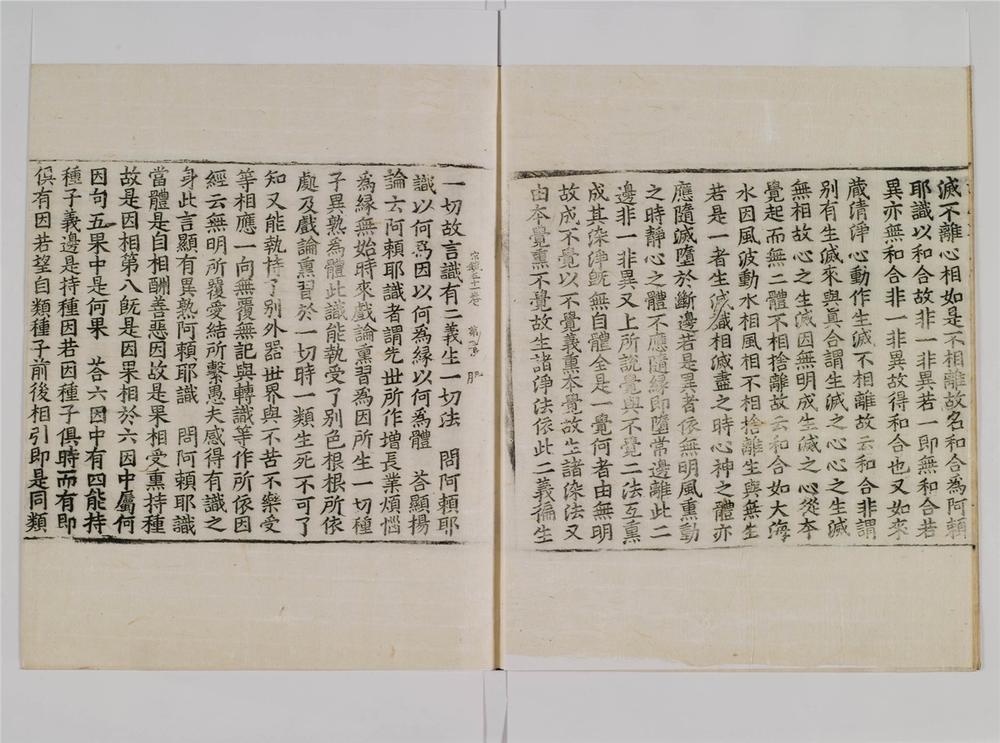 滅不離心相如是不相離故名和合為阿賴
耶識以和合故非一非異若一即無和合若
異亦無和合非一非異故得和合也又如來
藏清淨心動作生滅不相離故云和合非謂
別有生滅來與真合謂生滅之心心之生滅
無相故心之生滅因無明成生滅之心從本
覺起而無二體不相捨離故云和合如大海
水因風波動水相風相不相捨離生與無生
若是一者生滅識相滅盡之時心神之體亦
應隨滅墮於斷邊若是異者依無明風熏動
之時靜心之體不應隨緣即墮常邊離此二
邊非一非異又上所說覺與不覺二法互熏
成其染淨既無自體全是一覺何者由無明
故成不覺以不覺義熏本覺故生諸染法又
由本覺熏不覺故生諸淨法依此二義徧生
一切故言識有二義生一切法　問阿賴耶
宗鏡五十一卷　肥
識以何為因以何為緣以何為體　荅顯揚
論云阿賴耶識者謂先世所作增長業煩惱
為緣無始時來戲論熏習為因所生一切種
子異熟為體此識能執受了別色根根所依
處及戲論熏習於一切時一類生死不可了
知又能執持了別外器世界與不苦不樂受
等相應一向無覆無記與轉識等作所依因
經云無明所覆愛結所繫愚夫感得有識之
身此言顯有異熟阿賴耶識　問阿賴耶識
當體是自相酬善惡因故是果相受熏持種
故是因相第八旣是因果相於六因中屬何
因句五果中是何果　荅六因中有四能持
種子義邊是持種因若因種子俱時而有即
俱有因若望自類種子前後相引即是同類